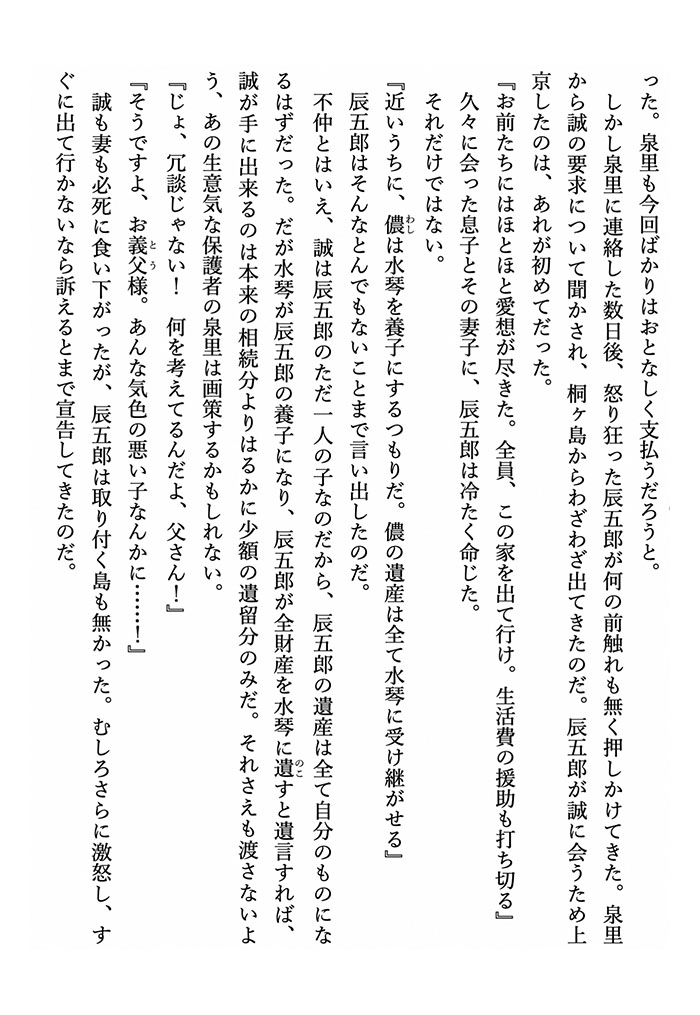 った。泉里も今回ばかりはおとなしく支払うだろうと。
　しかし泉里に連絡した数日後、怒り狂った辰五郎が何の前触れも無く押しかけてきた。泉里
から誠の要求について聞かされ、桐ヶ島からわざわざ出てきたのだ。辰五郎が誠に会うため上
京したのは、あれが初めてだった。
『お前たちにはほとほと愛想が尽きた。全員、この家を出て行け。生活費の援助も打ち切る』
　久々に会った息子とその妻子に、辰五郎は冷たく命じた。
　それだけではない。
『近いうちに、儂わしは水琴を養子にするつもりだ。儂の遺産は全て水琴に受け継がせる』
　辰五郎はそんなとんでもないことまで言い出したのだ。
　不仲とはいえ、誠は辰五郎のただ一人の子なのだから、辰五郎の遺産は全て自分のものにな
るはずだった。だが水琴が辰五郎の養子になり、辰五郎が全財産を水琴に遺のこすと遺言すれば、
誠が手に出来るのは本来の相続分よりはるかに少額の遺留分のみだ。それさえも渡さないよ
う、あの生意気な保護者の泉里は画策するかもしれない。
『じょ、冗談じゃない！　何を考えてるんだよ、父さん！』
『そうですよ、お義父とう様。あんな気色の悪い子なんかに……！』
　誠も妻も必死に食い下がったが、辰五郎は取り付く島も無かった。むしろさらに激怒し、す
ぐに出て行かないなら訴えるとまで宣告してきたのだ。